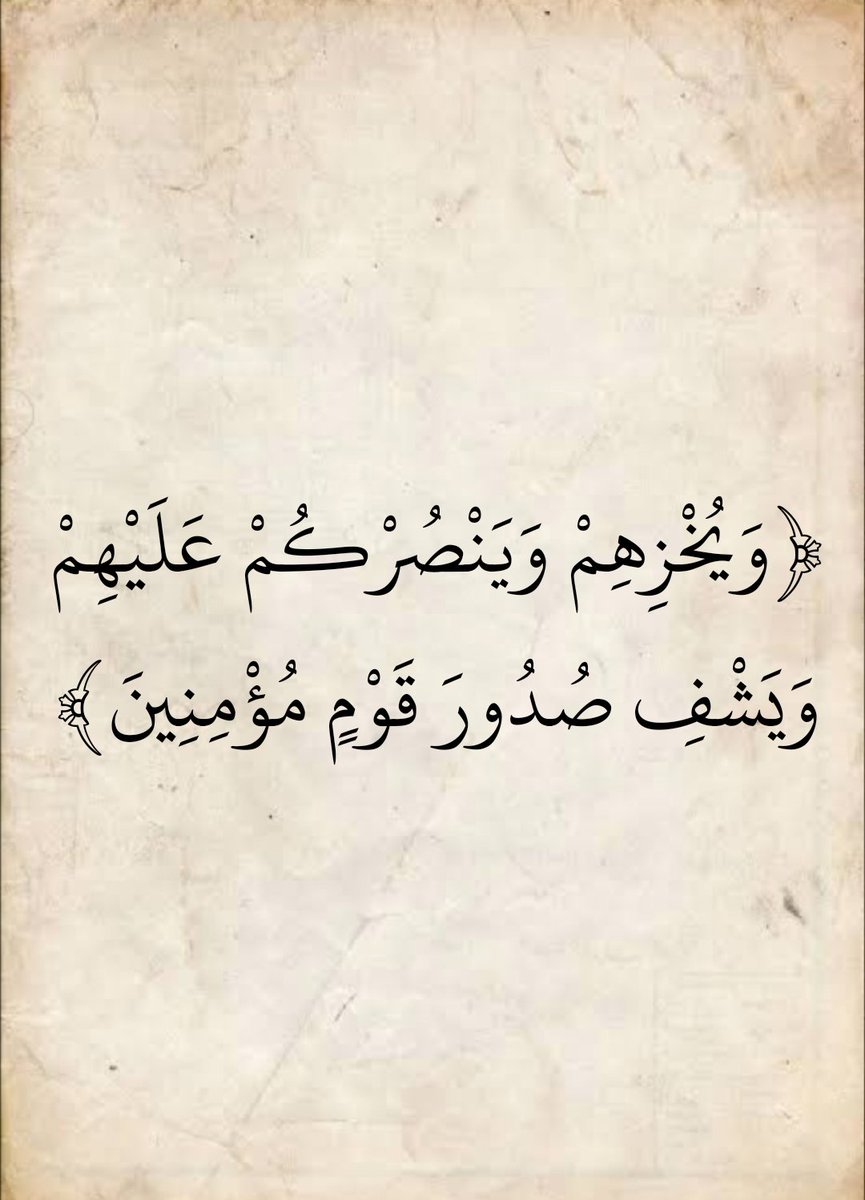 ﴿وَيُخْزِهِمْ وَيَنْصُرْكُمْ عَلَيْهِمْ
وَيَشْفِ صُدُورَ قَوْمٍ مُؤْمِنِينَ﴾